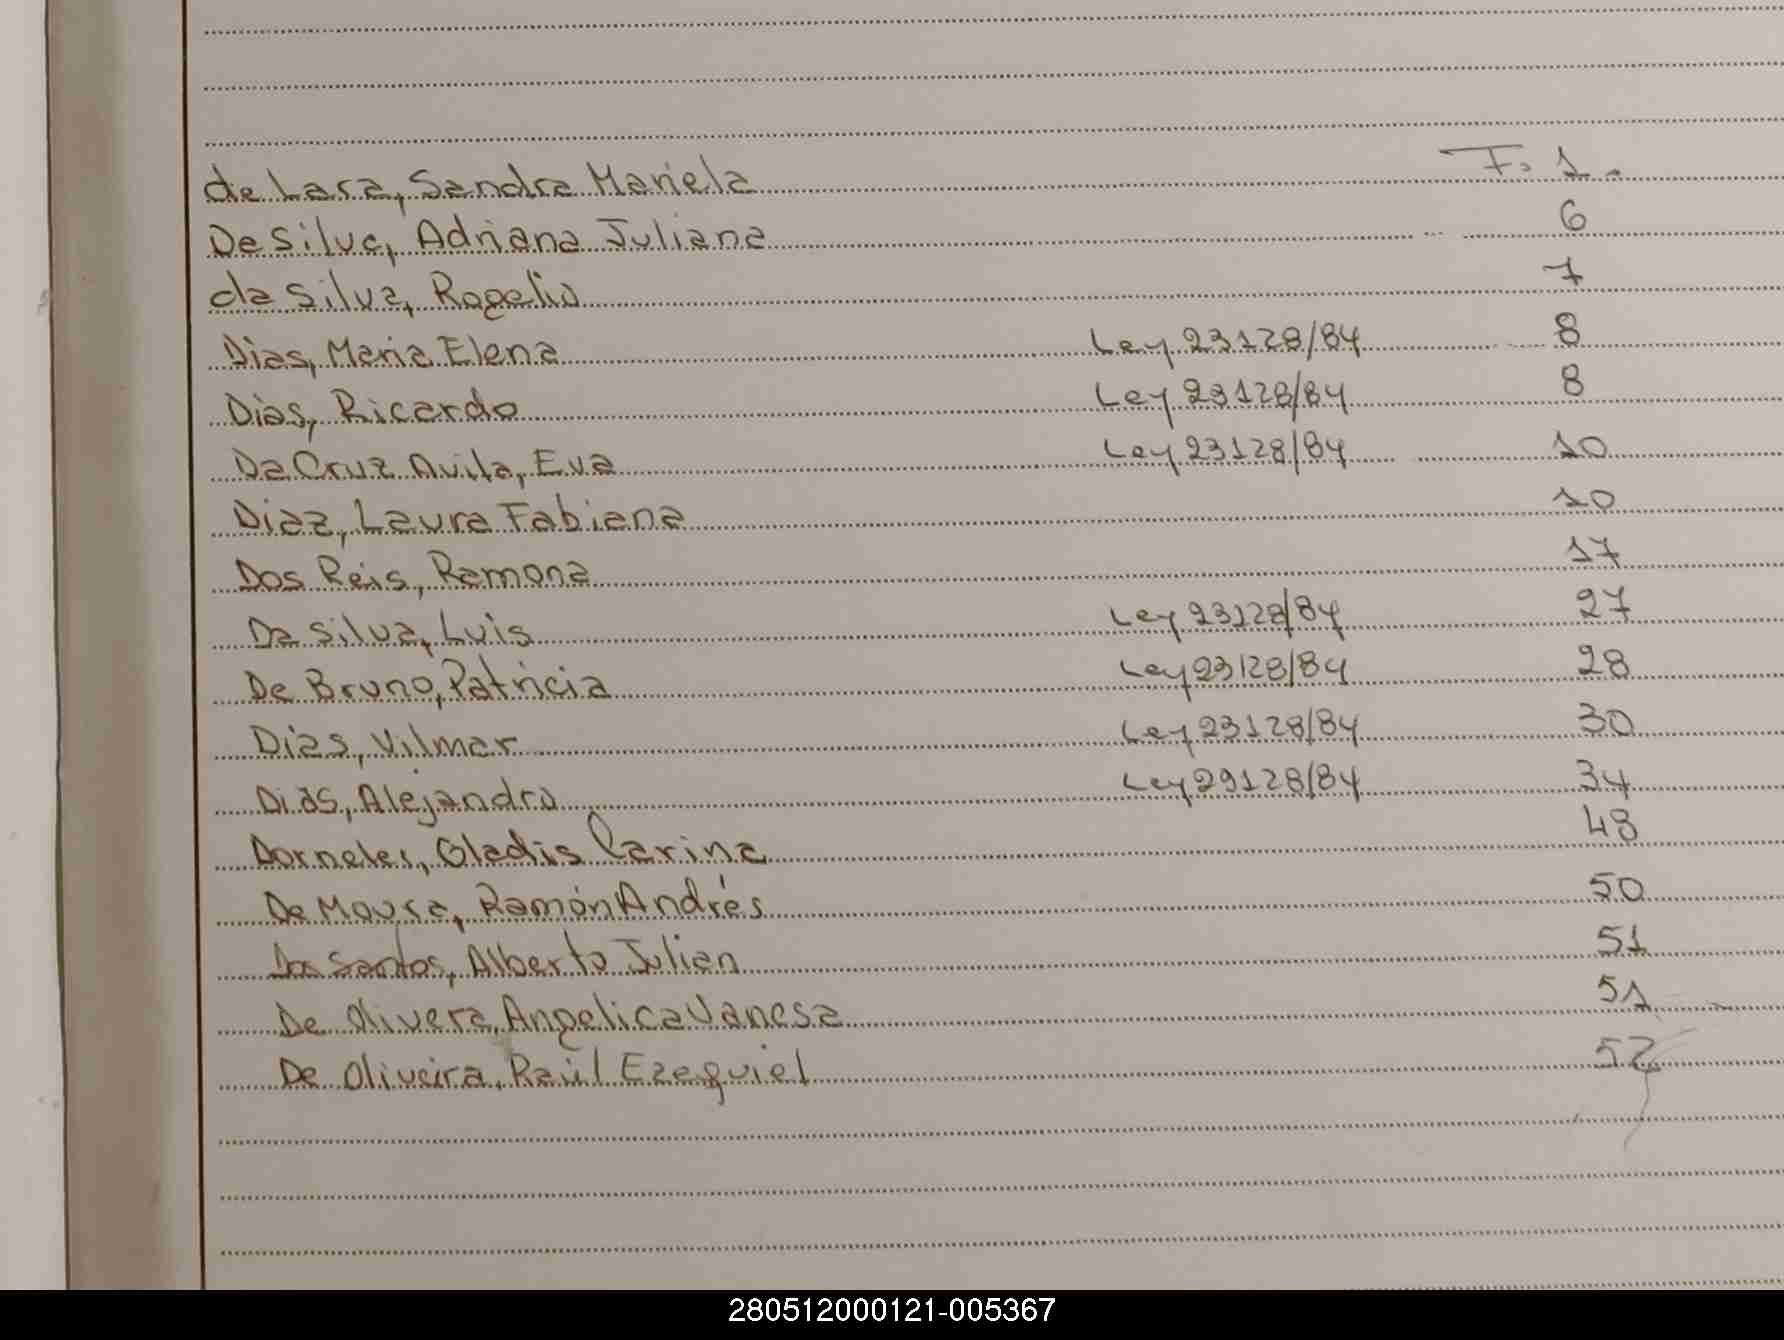 de Lara, Sandra Mariela F: 1.
De Silva, Adriana Juliana 6
da Silva, Rogelio 7
Dias, Maria Elena Ley 23128/84 8
Dias, Ricardo Ley 23128/84 8
Da Cruz Avila, Eva Ley 23128/84 10
Diaz, Laura Fabiana 10
Dos Reis, Ramona 17
Da Silva, Luis Ley 23128/84 27
De Bruno, Patricia Ley 23128/84 28
Dias, Vilmar Ley 23128/84 30
Dias, Alejandro Ley 23128/84 34
Dorneles, Gladis Carina 48
De Moura, Ramón Andrés 50
Dos Santos, Alberto Julian 51
De Olivera, Angelica Vanesa 51
De Oliveira, Raúl Ezequiel 52
280512000121-005367